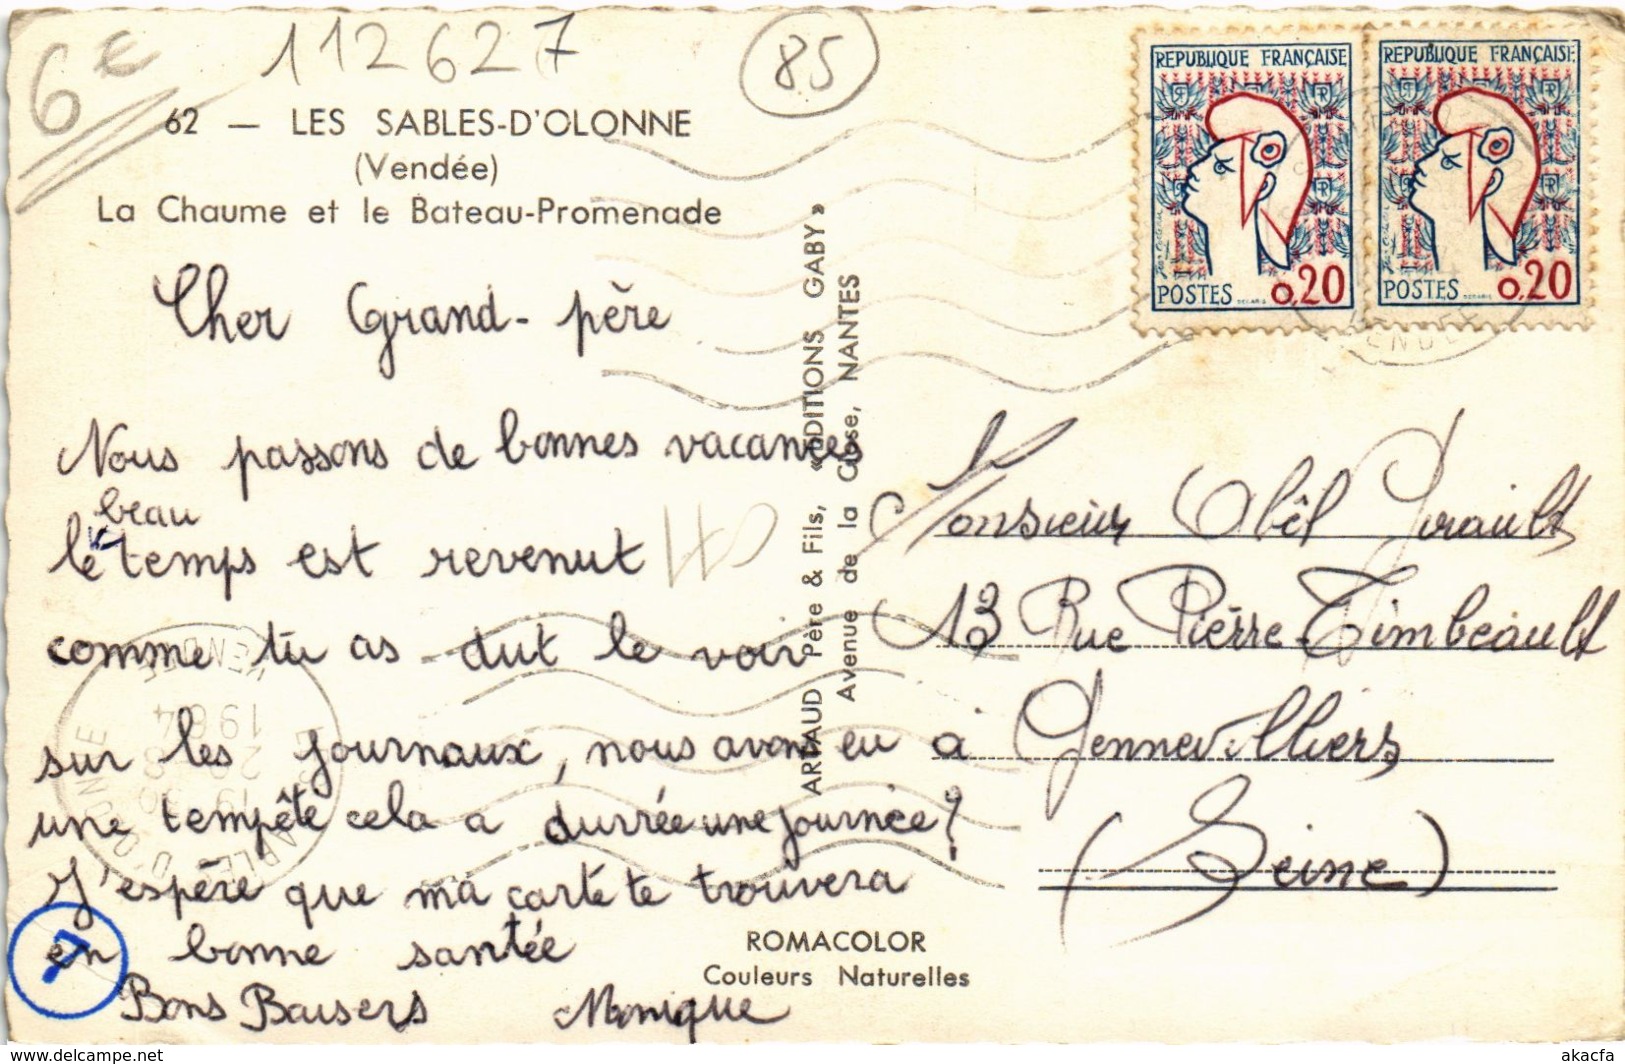 6€
112627
85
62 — LES SABLES-D'OLONNE
(Vendée)
La Chaume et le Bateau-Promenade
Cher Grand-père
Nous passons de bonnes vacances
beau
le temps est revenut
comme tu as dut le voir
sur les journaux, nous avons eu
une tempête cela a durrée une journée?
J'espère que ma carte te trouvera
en bonne santée
Bons Baisers Monique
7
ARTAUD Père & Fils, «EDITIONS GABY»
Avenue de la Close, NANTES
REPUBLIQUE FRANÇAISE
POSTES 0,20
REPUBLIQUE FRANÇAISE
POSTES 0,20
VENDEE
Monsieur Abêl Girault
13 Rue Pierre-Timbeault
à Gennevilliers
(Seine)
ROMACOLOR
Couleurs Naturelles
LES SABLES D'OLONNE
1964
VENDEE
www.delcampe.net
akacfa